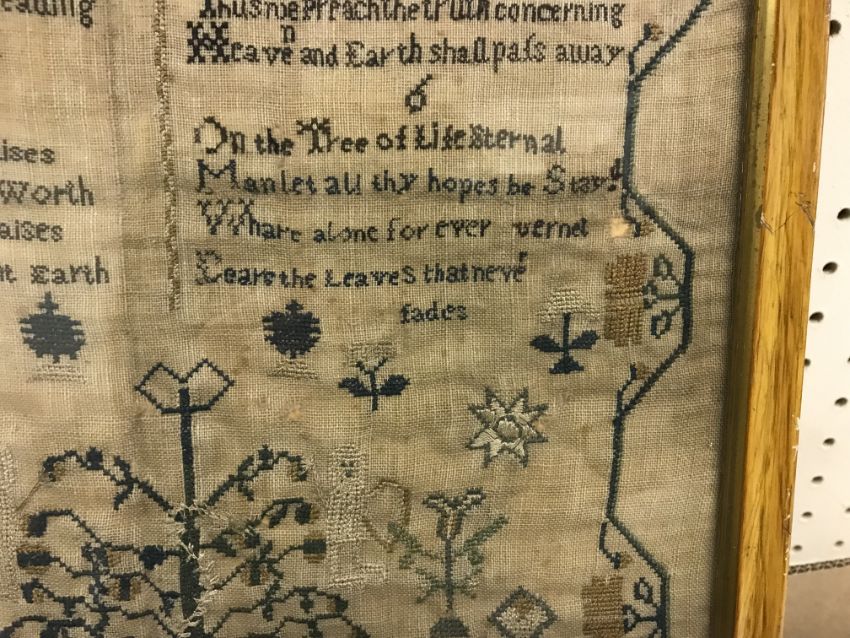 eading
Thus he Preach the truth concerning
Heav'n and Earth shall paſs away
6
On the Tree of Life Eternal
Man let all thy hopes be Stay'd
Whare alone for ever vernel
Bears the Leaves that never
fades
ises
Worth
aises
nt Earth